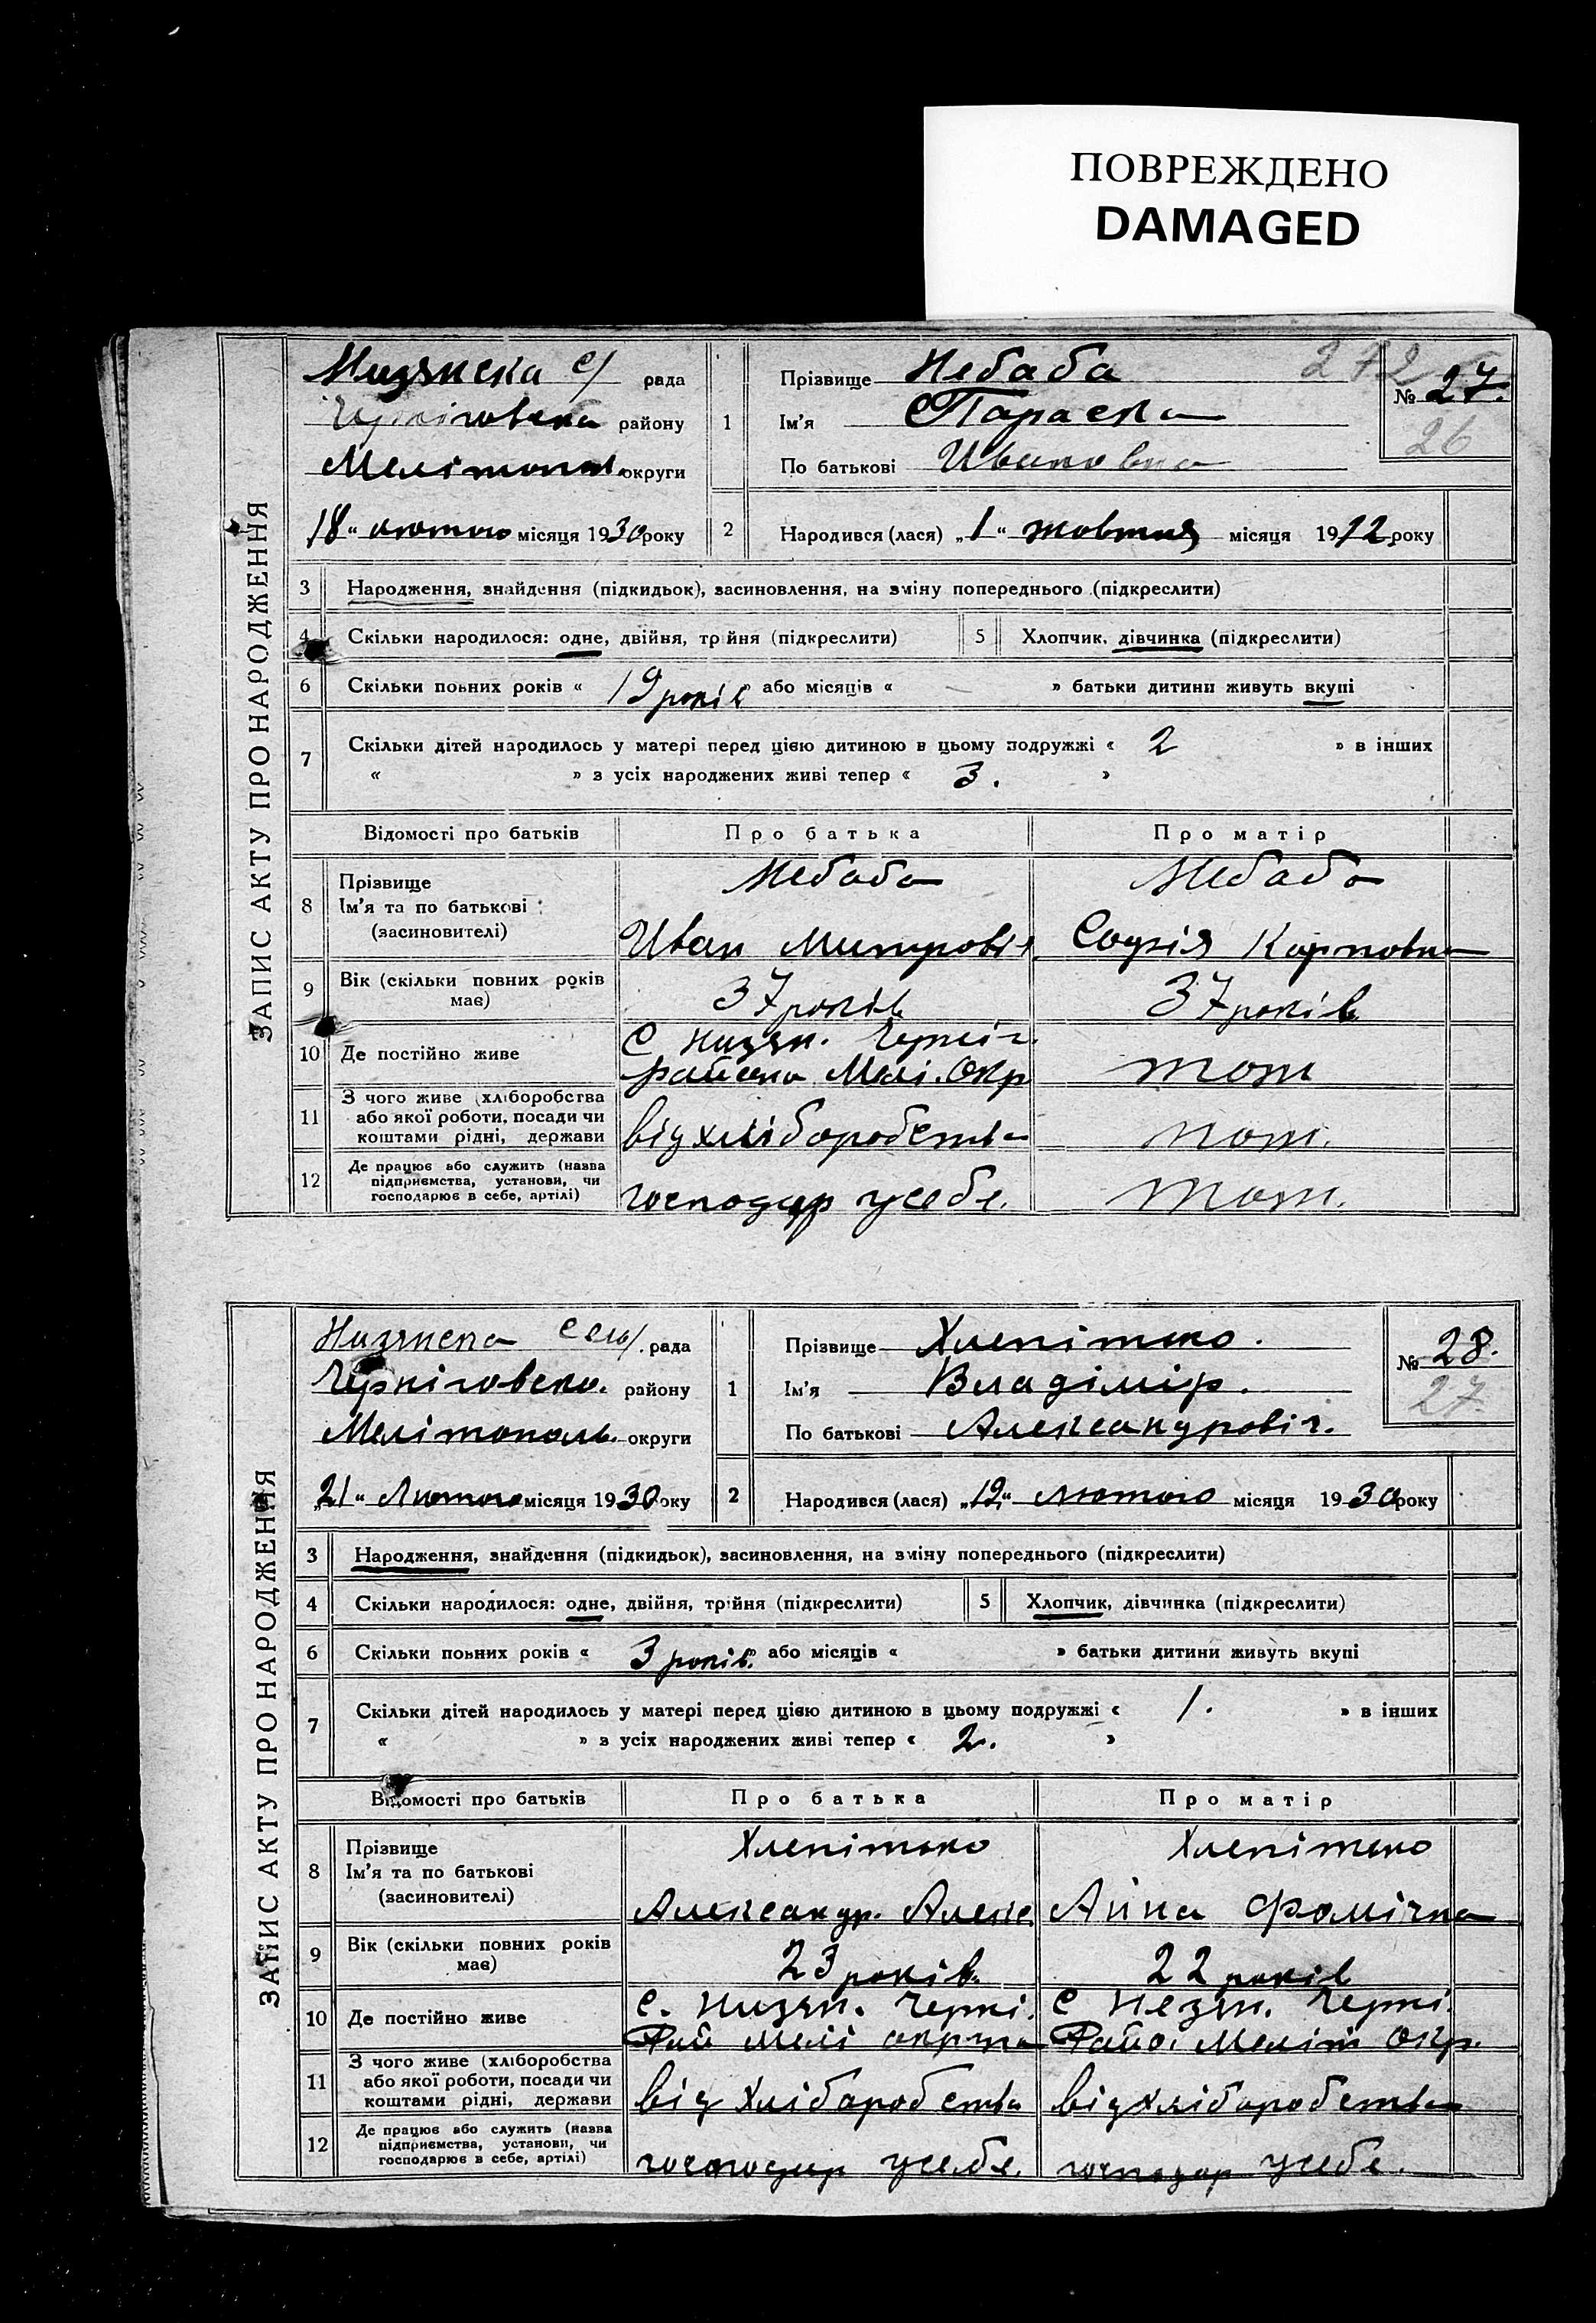 ПОВРЕЖДЕНО
DAMAGED
ЗАПИС АКТУ ПРО НАРОДЖЕННЯ
Низянска с/ рада
Черніговска району
Мелітопол. округи
"18" лютого місяця 1930 року
1 Прізвище Небаба
Ім'я Параска
По батькові Ивановна
272
№ 27.
26
2 Народився (лася) „1“ жовтня місяця 1912 року
3 Народження, знайдення (підкидьок), засиновлення, на зміну попереднього (підкреслити)
4 Скільки народилося: одне, двійня, трійня (підкреслити) 5 Хлопчик, дівчинка (підкреслити)
6 Скільки повних років « 19 років » або місяців « » батьки дитини живуть вкупі
7 Скільки дітей народилось у матері перед цією дитиною в цьому подружжі « 2 » в інших
« » з усіх народжених живі тепер « 3. »
Відомості про батьків Про батька Про матір
8 Прізвище Ім'я та по батькові (засиновителі)
Небаба Небаба
Иван Митрович Софія Карповна
9 Вік (скільки повних років має) 37 років 37 років
10 Де постійно живе С Низян. Черніг. тож
району Мелі. Окр
11 З чого живе (хліборобства або якої роботи, посади чи коштами рідні, держави
від хліборобства тож.
12 Де працює або служить (назва підприємства, установи, чи господарює в себе, артілі)
господар у себе. тож.
ЗАПИС АКТУ ПРО НАРОДЖЕННЯ
Низянска сель/. рада
Черніговско. району
Мелітополь. округи
„21“ Лютого місяця 1930 року
1 Прізвище Хлепітько.
Ім'я Владімір.
По батькові Александровіч.
№ 28.
27.
2 Народився (лася) „19“ лютого місяця 1930 року
3 Народження, знайдення (підкидьок), засиновлення, на зміну попереднього (підкреслити)
4 Скільки народилося: одне, двійня, трійня (підкреслити) 5 Хлопчик, дівчинка (підкреслити)
6 Скільки повних років « 3 років. » або місяців « » батьки дитини живуть вкупі
7 Скільки дітей народилось у матері перед цією дитиною в цьому подружжі « 1. » в інших
« » з усіх народжених живі тепер « 2. »
Відомості про батьків Про батька Про матір
8 Прізвище Ім'я та по батькові (засиновителі)
Хлепітько Хлепітько
Александр. Алекс. Анна Фомічна
9 Вік (скільки повних років має) 23 років. 22 років
10 Де постійно живе с. Низян. Черні. С Незян. Черні.
Рай Мелі округа Райо. Меліт Окр.
11 З чого живе (хліборобства або якої роботи, посади чи коштами рідні, держави
від Хліборобства від хліборобства
12 Де працює або служить (назва підприємства, установи, чи господарює в себе, артілі)
господар у себе. господар у себе.